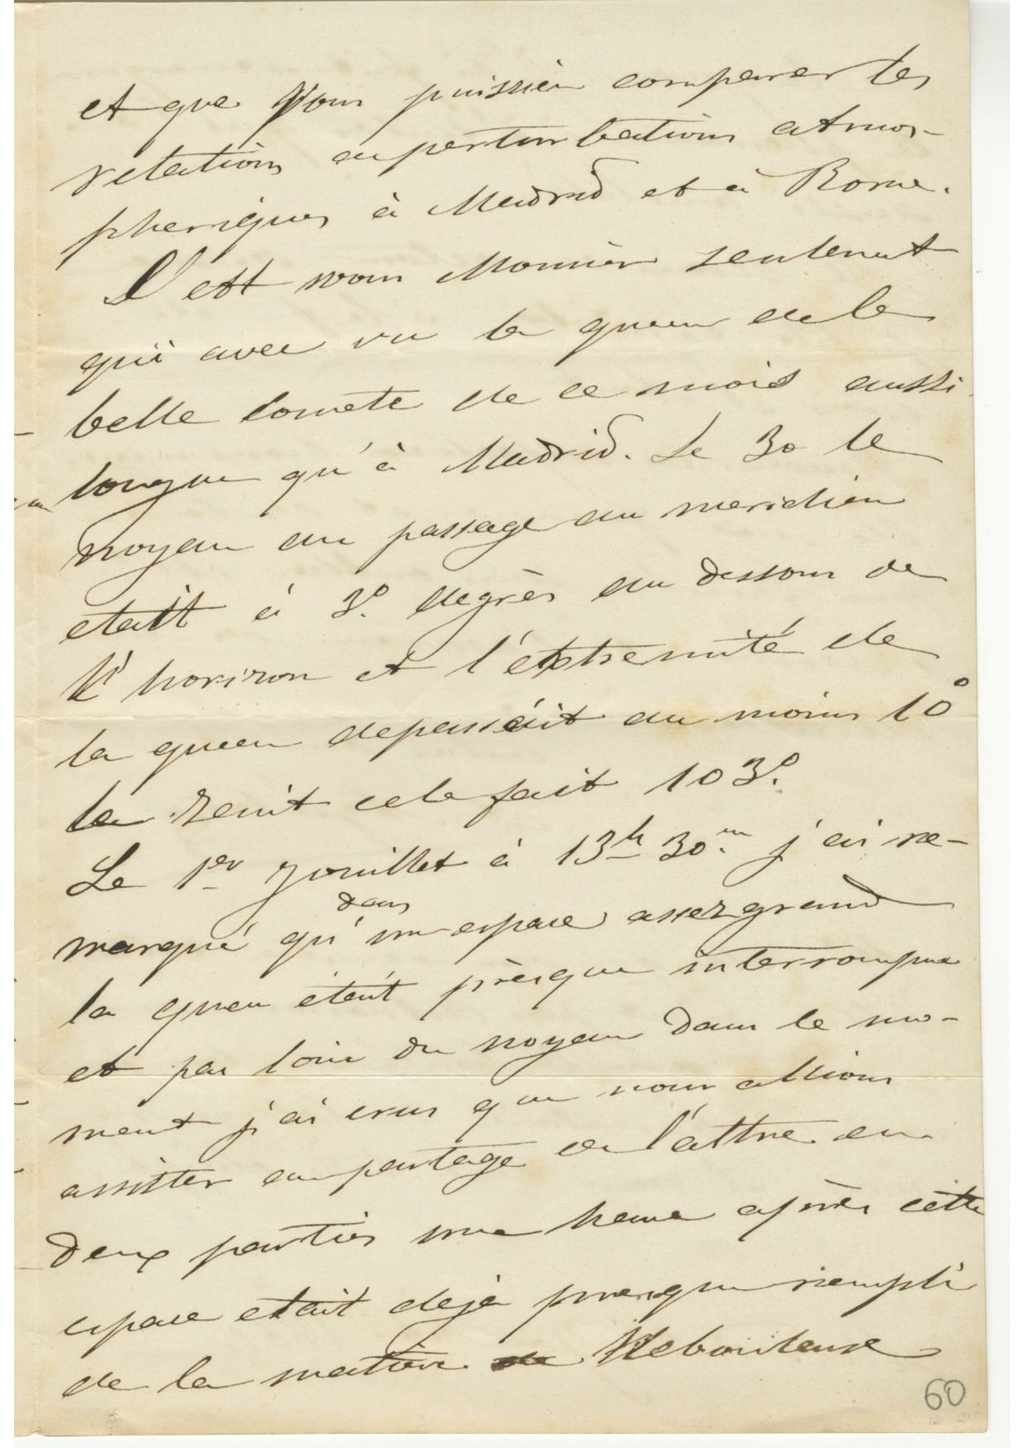 et que vous puissiez comparer les
relations au perturbations atmos-
pheriques à Madrid et à Rome.
C'est vous Monsieur seulement
qui avec vu la queue de la
belle comete de ce mois aussi
longue qu'à Madrid. Le 30 le
noyau au passage au meridien
etait à 3°. degrès au dessous de
l'horizon et l'extremité de
la queu depassáit au moins 10°
le zenit cela fait 103°.
Le 1er Jouillet à 13h 30m j'ai re-
marqué qu'dans un espace assez grand
la queu était prèsque interrompue
et pas loin du noyau dans le mo-
ment j'ai crus que nous allions
assitter au partage de l'attre en
deux parties une heure après cette
espace etait dejà presque rempli
de la matiere de Nebouleuse
60